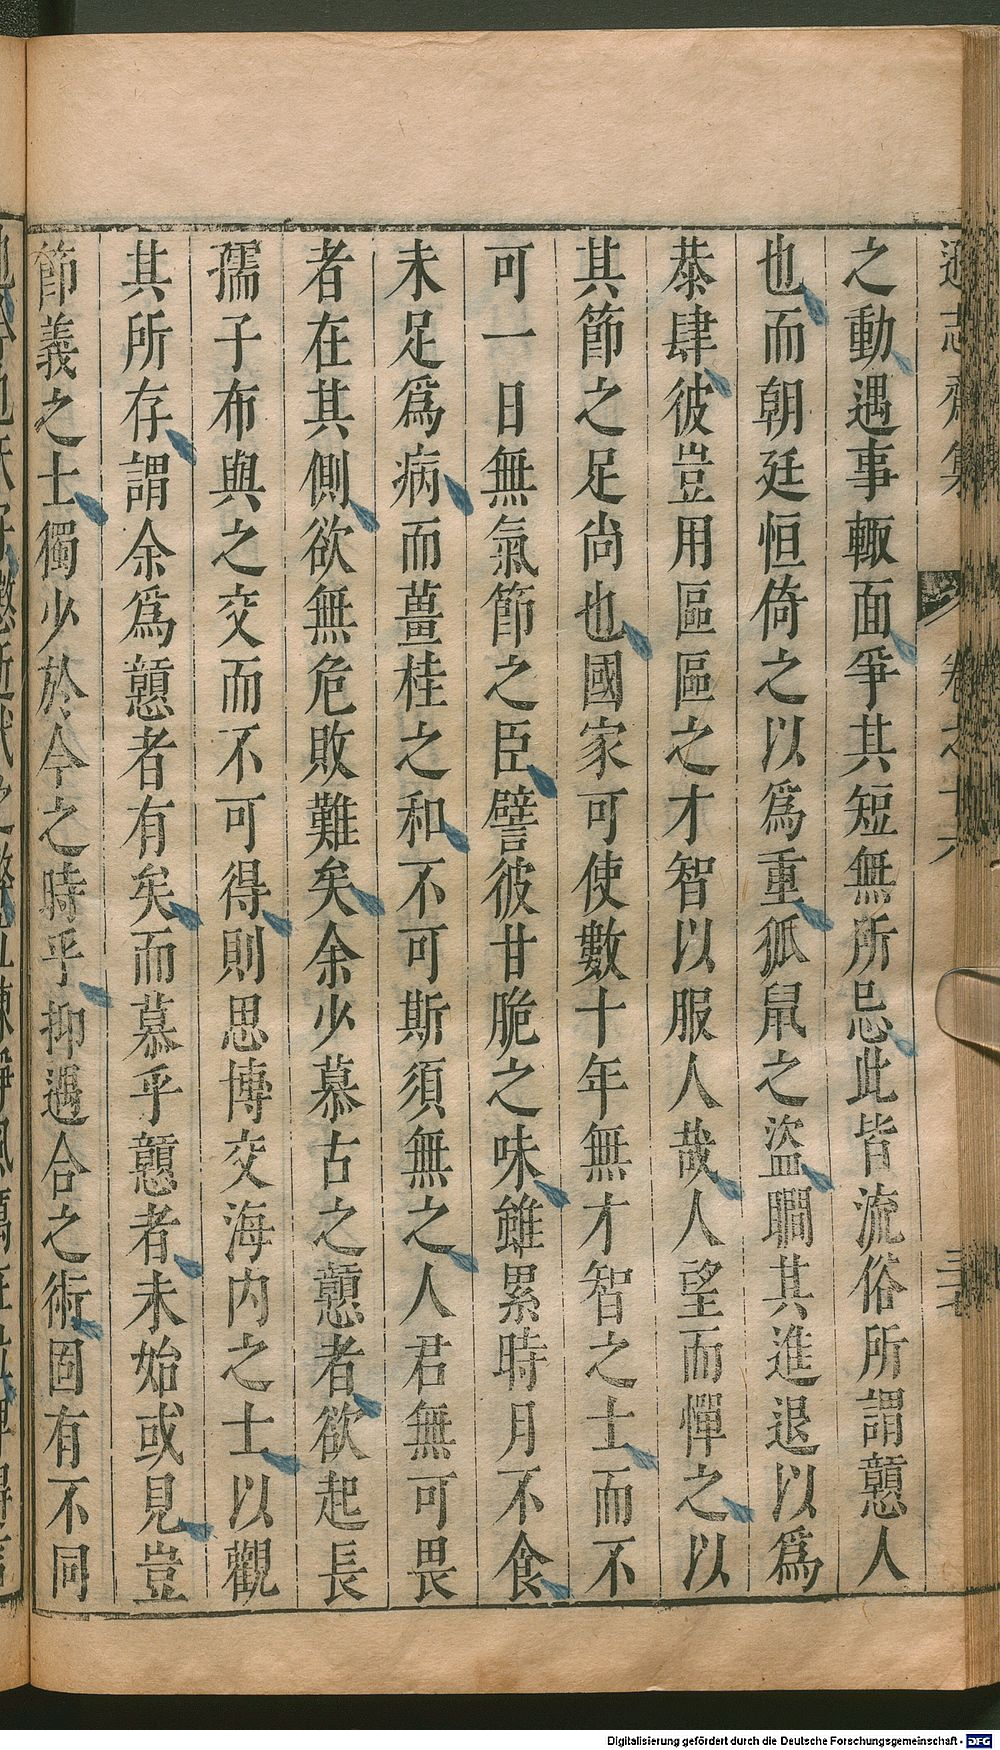 遜志齋集 卷之十六
之動遇事輙面爭其短無所忌此皆流俗所謂戇人
也而朝廷恒倚之以爲重狐鼠之盜瞷其進退以爲
恭肆彼豈用區區之才智以服人哉人望而憚之以
其節之足尚也國家可使數十年無才智之士而不
可一日無氣節之臣譬彼甘脆之味雖累時月不食
未足爲病而薑桂之和不可斯須無之人君無可畏
者在其側欲無危敗難矣余少慕古之戇者欲起長
孺子布與之交而不可得則思博交海内之士以觀
其所存謂余爲戇者有矣而慕乎戇者未始或見豈
節義之士獨少於今之時乎抑遇合之術固有不同
Digitalisierung gefördert durch die Deutsche Forschungsgemeinschaft - DFG